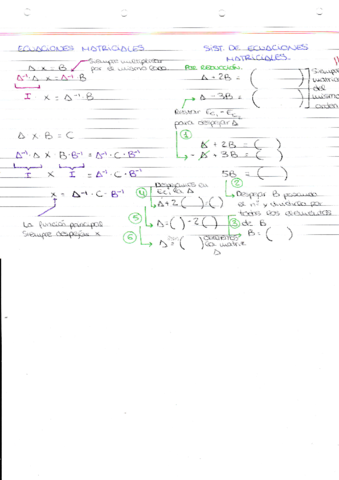 ECUACIONES MATRICIALES
A x = B
Siempre multiplicar
por el mismo lado
A⁻¹·A x = A⁻¹·B
I x = A⁻¹·B
A X B = C
A⁻¹·A X B·B⁻¹ = A⁻¹·C·B⁻¹
I X I = A⁻¹·C·B⁻¹
x = A⁻¹·C·B⁻¹
La función principal
siempre despejar x
SIST. DE ECUACIONES
MATRICIALES.
Por REDUCCIÓN:
A - 2B = ( )
A - 3B = ( )
Siempre
matrices
del
mismo
orden
Restar Ec₁ - Ec₂
para despejar A
①
A + 2B = ( )
- A + 3B = ( )
5B = ( )
②
Despejar B pasando
el nº y dividirlo por
todos los elementos
③ de B
B = ( )
④ Despejamos en
Ec₁ la A
A + 2( ) = ( )
⑤ A = ( ) - 2( )
⑥ A = ( )
la matriz
A